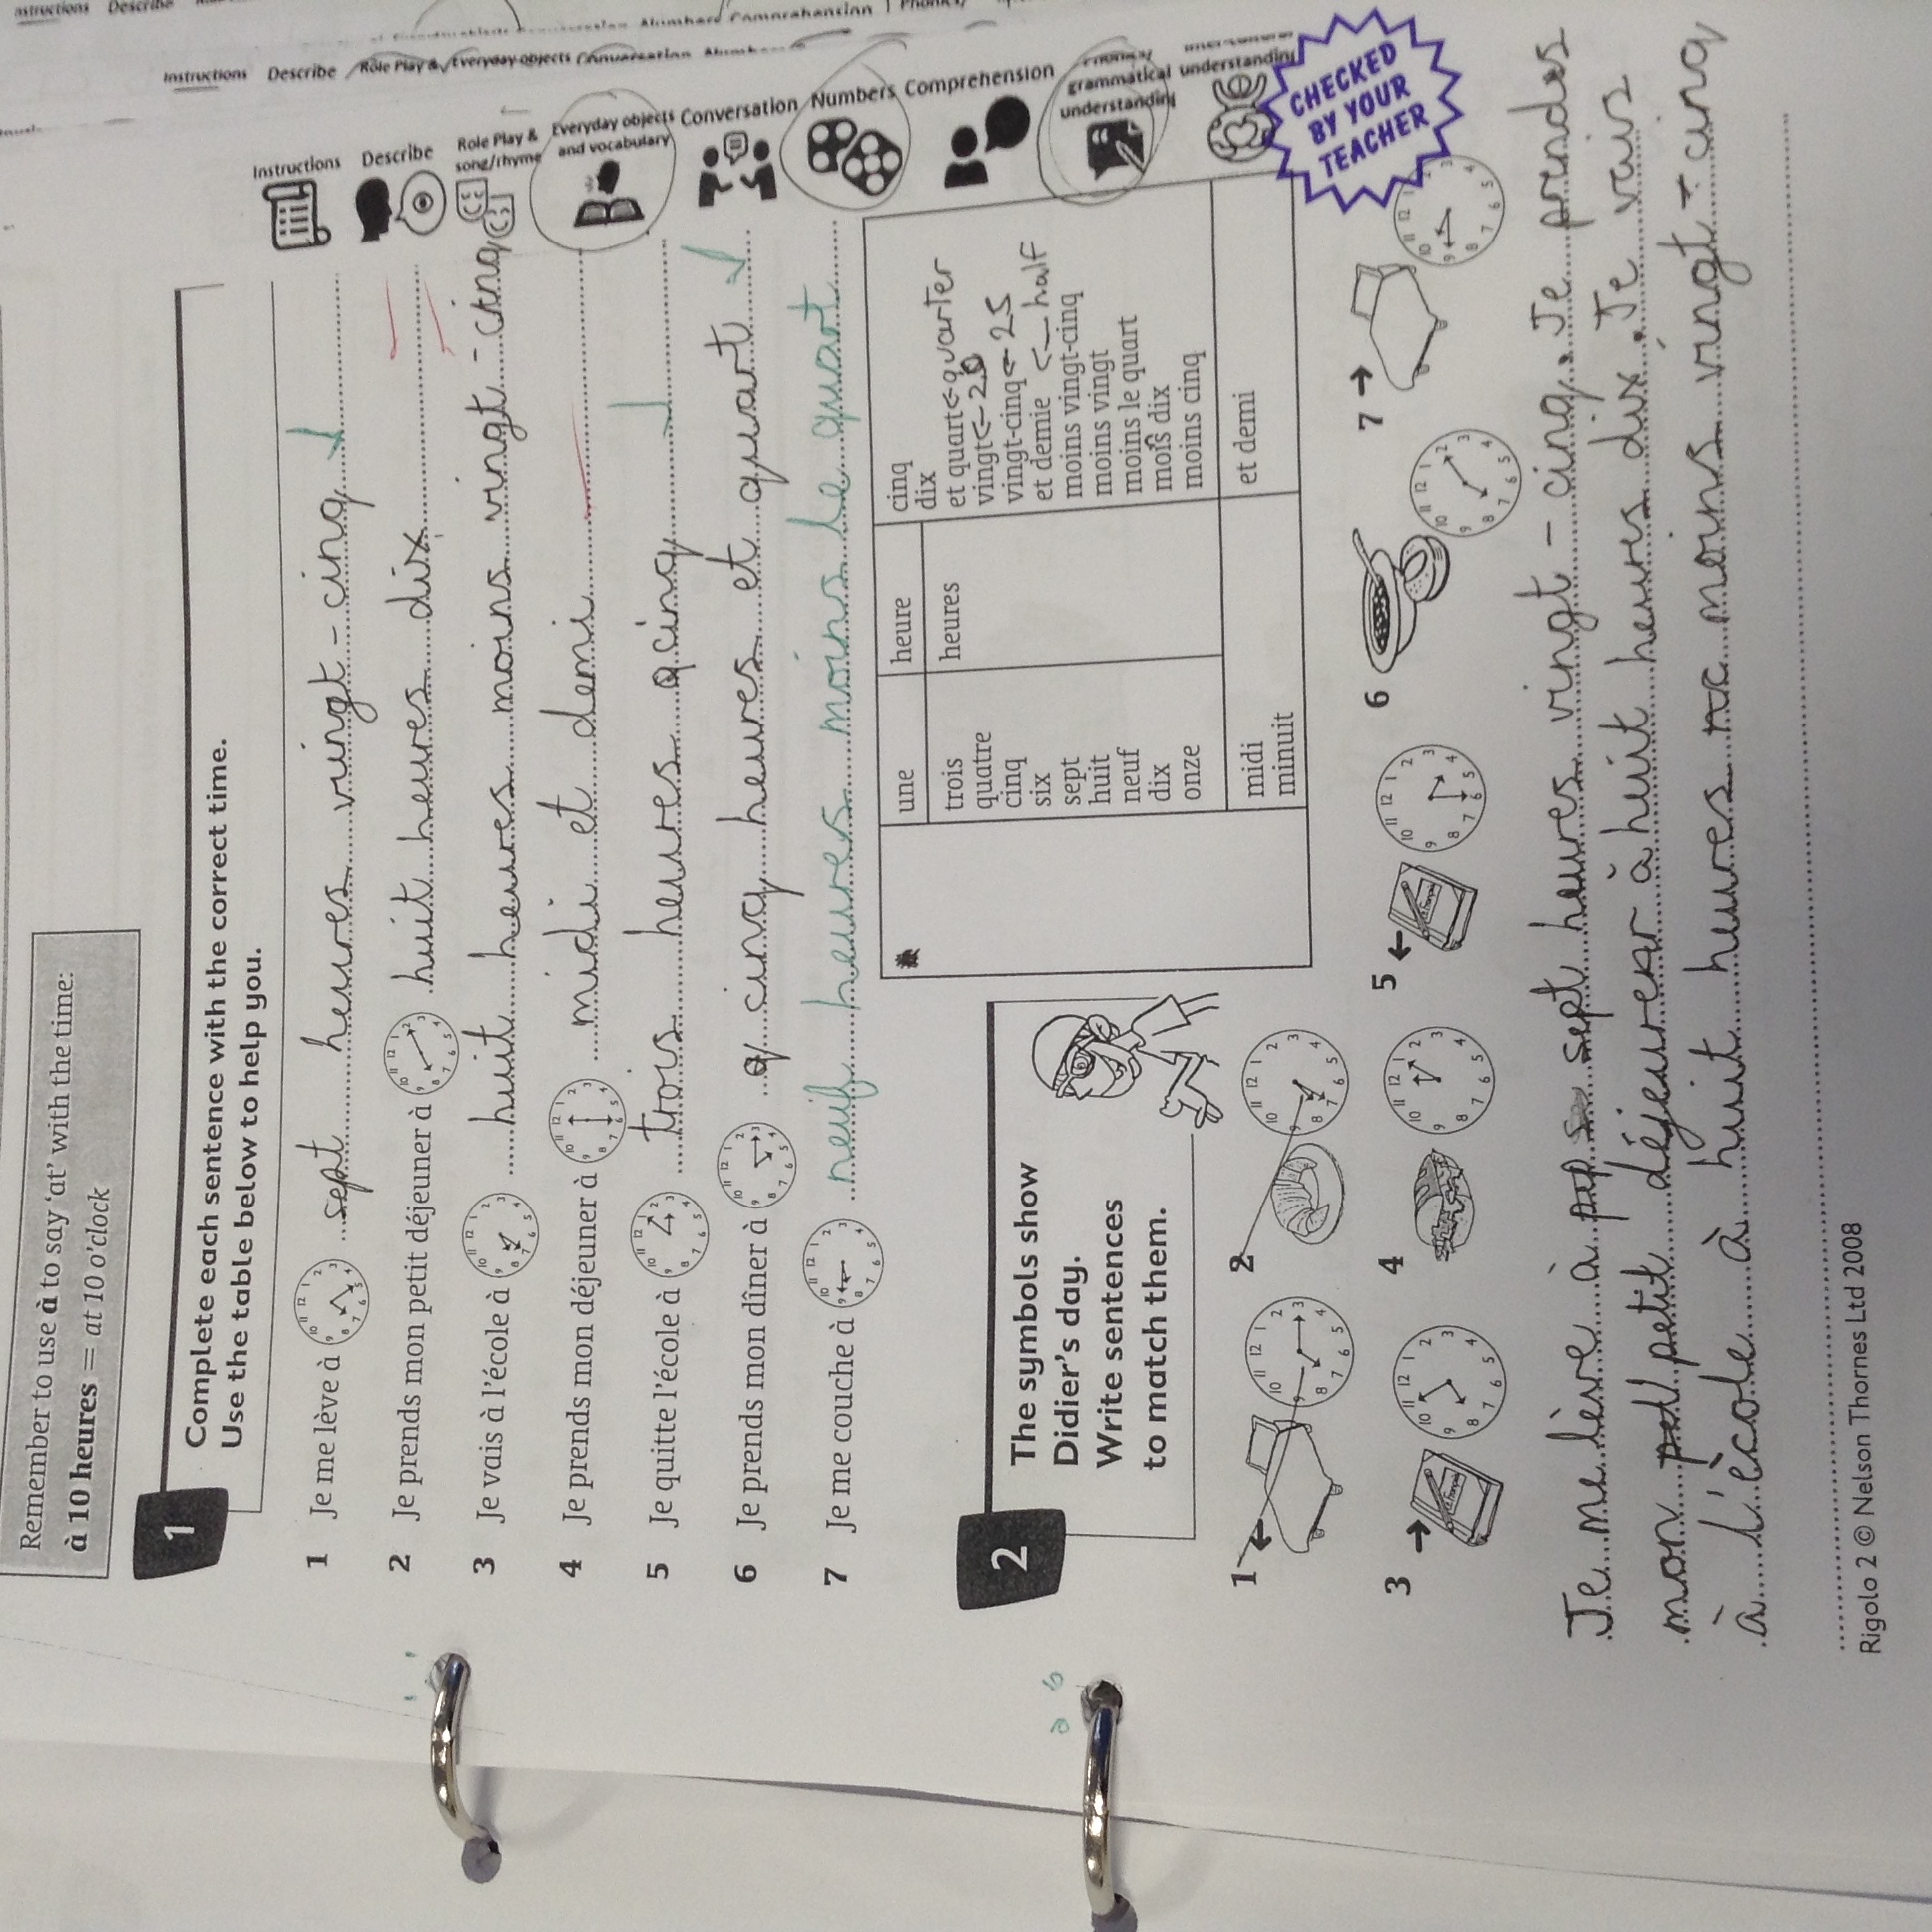 Instructions Describe
Comprehension
Instructions Describe Role Play & Everyday objects Conversation Numbers
Instructions
Describe
Role Play &
song/rhyme
Everyday objects
and vocabulary
Conversation
Numbers
Comprehension
grammatical
understanding
understanding
CHECKED
BY YOUR
TEACHER
Remember to use à to say ‘at’ with the time:
à 10 heures = at 10 o’clock
1
Complete each sentence with the correct time.
Use the table below to help you.
1 Je me lève à sept heures vingt-cinq
2 Je prends mon petit déjeuner à huit heures dix
3 Je vais à l’école à huit heures moins vingt-cinq
4 Je prends mon déjeuner à midi et demi
5 Je quitte l’école à trois heures cinq
6 Je prends mon dîner à cinq heures et quart
7 Je me couche à neuf heures moins le quart
une heure cinq
dix
trois heures et quart ← quarter
quatre vingt ← 20
cinq vingt-cinq ← 25
six et demie ← half
sept moins vingt-cinq
huit moins vingt
neuf moins le quart
dix moins dix
onze moins cinq
midi et demi
minuit
2
The symbols show
Didier’s day.
Write sentences
to match them.
1
2
3
4
5
6
7
Je me lève à sept heures vingt-cinq. Je prends
mon petit déjeuner à huit heures dix. Je vais
à l'école à huit heures moins vingt-cinq
Rigolo 2 © Nelson Thornes Ltd 2008